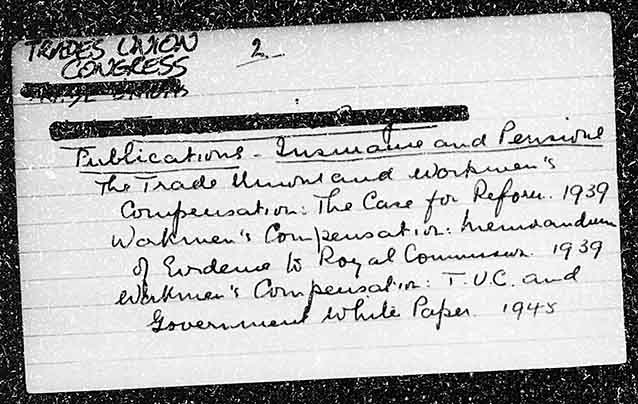 TRADES UNION
CONGRESS
2
Publications - Insurance and Pensions
The Trade Unions and Workmen's
Compensation: The Case for Reform. 1939
Workmen's Compensation: Memorandum
of Evidence to Royal Commission. 1939
Workmen's Compensation: T.U.C. and
Government White Paper. 1945